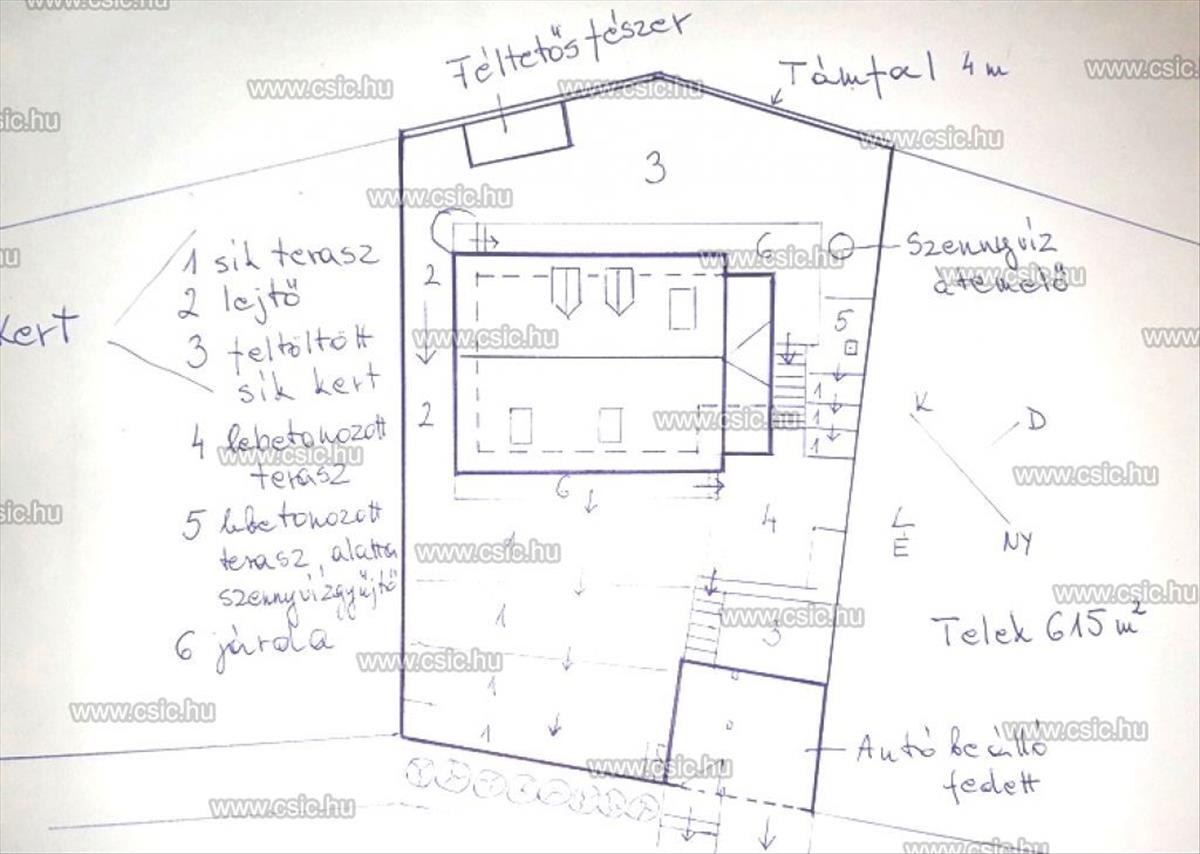 Féltetős fészer
Támfal 4 m
3
1 sík terasz
2 lejtő
kert
3 feltöltött
sík kert
4 lebetonozott
terasz
5 lebetonozott
terasz, alatta
szennyvízgyűjtő
6 járda
2
2
6
Szennyvíz
átemelő
5
1
1
1
6
4
K
D
É
NY
1
1
3
1
1
Telek 615 m²
Autó beálló
fedett
www.csic.hu